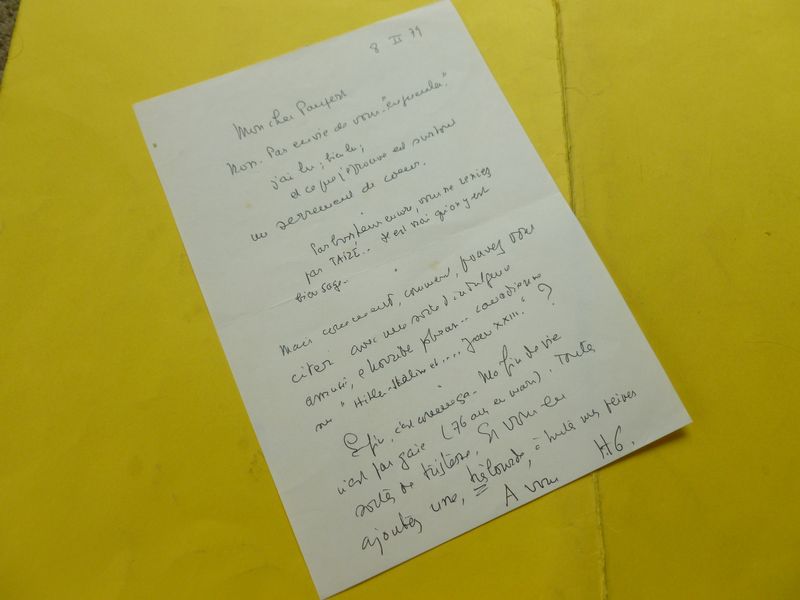 8 II 79
Mon cher Paupert
Non. Pas envie de vous "engueuler".
j'ai lu, bien lu,
et ce que j'éprouve est surtout
un serrement de coeur.
Par bonheur encore, vous ne reniez
pas TAIZÉ... Il est vrai qu'on y est
bien sage.
Mais comment, comment, pouvez-vous
citer avec une sorte d'indulgence
amusée, l'horrible phrase... canadienne
sur "Hitler-Staline et.... Jean XXIII." ?
Enfin, c'est comme ça. Ma fin de vie
n'est pas gaie (76 ans en mars). Toutes
sortes de tristesse. Et vous en
ajoutez une, très lourde, à toutes mes peines
A vous HG.